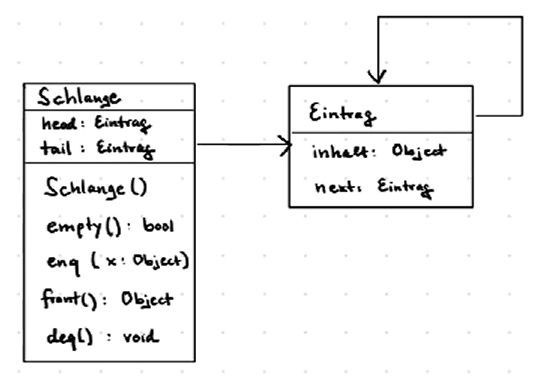 Schlange
head: Eintrag
tail: Eintrag
Schlange()
empty(): bool
enq (x: Object)
front(): Object
deq() : void
Eintrag
inhalt: Object
next: Eintrag